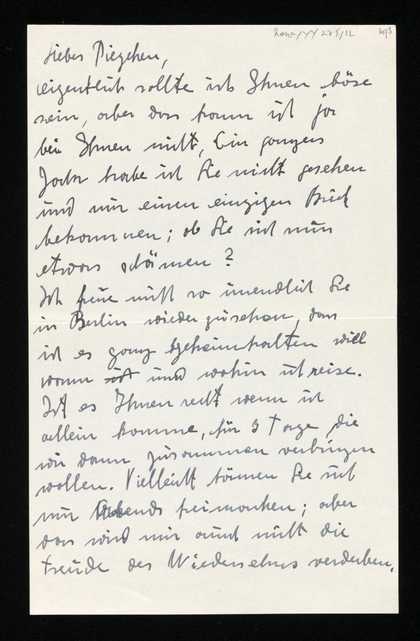 Liebes Piezchen,
eigentlich sollte ich Ihnen böse
sein, aber das kann ich ja
bei Ihnen nicht, Ein ganzes
Jahr habe ich Sie nicht gesehen
und nur einen einzigen Brief
bekommen; ob Sie sich nun
etwas schämen?
Ich freue mich so unendlich Sie
in Berlin wiederzusehen, dass
ich es ganz geheimhalten will
wann und wohin ich reise.
Ist es Ihnen recht wenn ich
allein komme, für 3 Tage die
wir dann zusammen verbringen
wollen. Vielleicht können Sie sich
nur Abends freimachen; aber
das wird mir auch nicht die
Freude des Wiedersehns verderben.